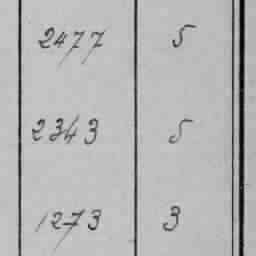 2477 5
2343 5
1273 3